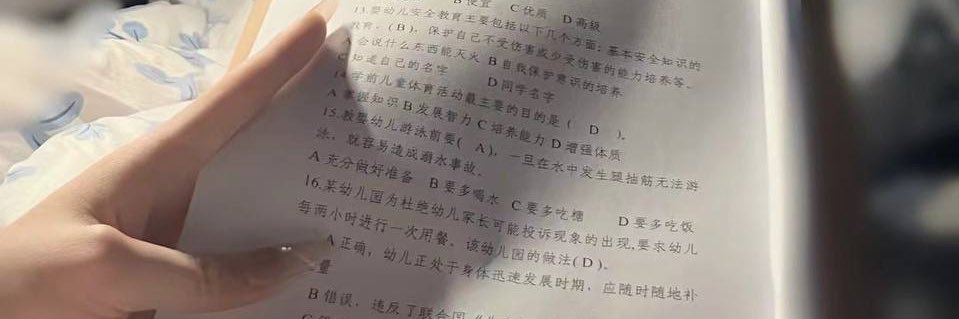 B 便宜 C 优质 D 高级
13.婴幼儿安全教育主要包括以下几个方面：基本安全知识的
教育、(B)、保护自己不受伤害或少受伤害的能力培养等。
会说什么东西能灭火 B 自我保护意识的培养
C 知道自己的名字 D 同学名字
14 学前儿童体育活动最主要的目的是（ D ）。
A 掌握知识 B 发展智力 C 培养能力 D 增强体质
15.教婴幼儿游泳前要( A )，一旦在水中发生腿抽筋无法游
泳，就容易造成溺水事故。
A 充分做好准备 B 要多喝水 C 要多吃糖 D 要多吃饭
16.某幼儿园为杜绝幼儿家长可能投诉现象的出现,要求幼儿
每两小时进行一次用餐。该幼儿园的做法( D )。
A 正确，幼儿正处于身体迅速发展时期，应随时随地补
量
B 错误，违反了联合国